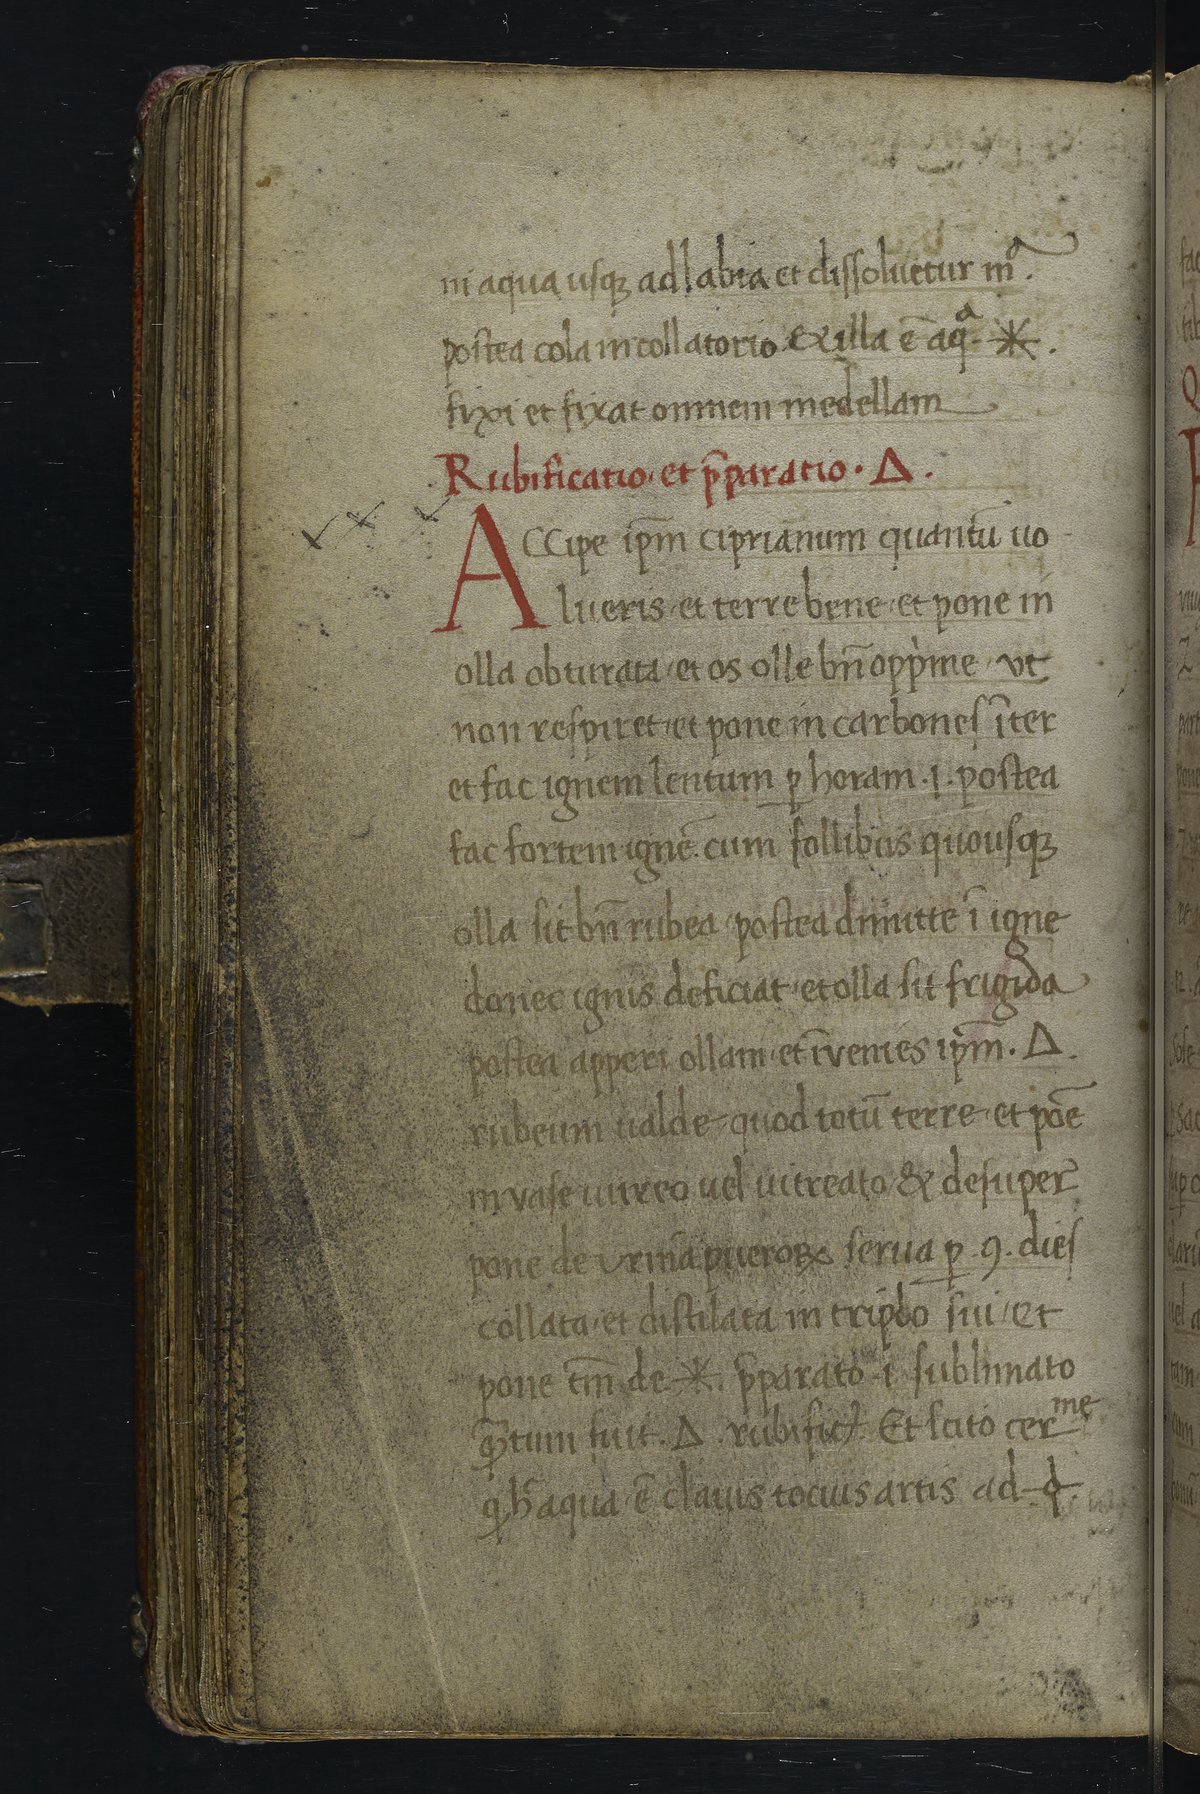 ni aqua usqꝫ ad labia et dissoluetur mᵃ.
postea cola in collatorio & illa ē aqᵃ. ✳.
fixi et fixat omnem medellam
Rubificatio · et p̄paratio · Δ .
ACCipe ip̄m ciprianum quantū uo
lueris · et terre bene · et pone in
olla obturata · et os olle bn̄ opp'me · ut
non respiret · et pone in carbones īter
et fac ignem lentum ꝑ horam · 1 · postea
fac fortem ignē. cum follibus quousqꝫ
olla sit bn̄ rubea · postea dimitte ī igne
donec ignis deficiat · et olla sit frigida
postea apperi ollam · et īvenies ip̄m · Δ .
rubeum ualde · quod totū terre · et poē
in vase uitreo uel uitreato & desuper
pone de vrina pueroꝝ serua ꝑ · 9 · dies
collata · et distilata in tripdo siui · et
pone tm̄ de ✳. p̄parato · i · sublimato
q̄tum fuit . Δ . rubific̄. Et scito cerᵐᵉ
ꝙ h̄ aqua ē clauis tocius artis ad